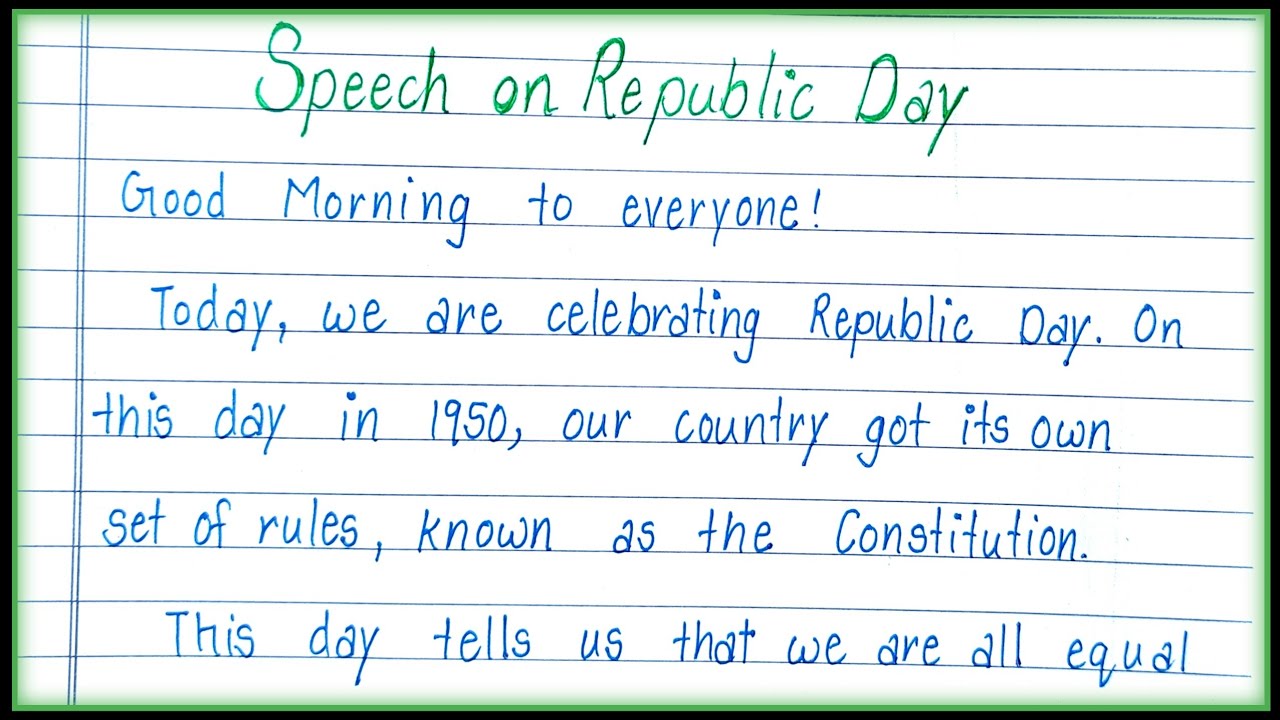 Speech on Republic Day
Good Morning to everyone!
Today, we are celebrating Republic Day. On
this day in 1950, our country got its own
set of rules, known as the Constitution.
This day tells us that we are all equal